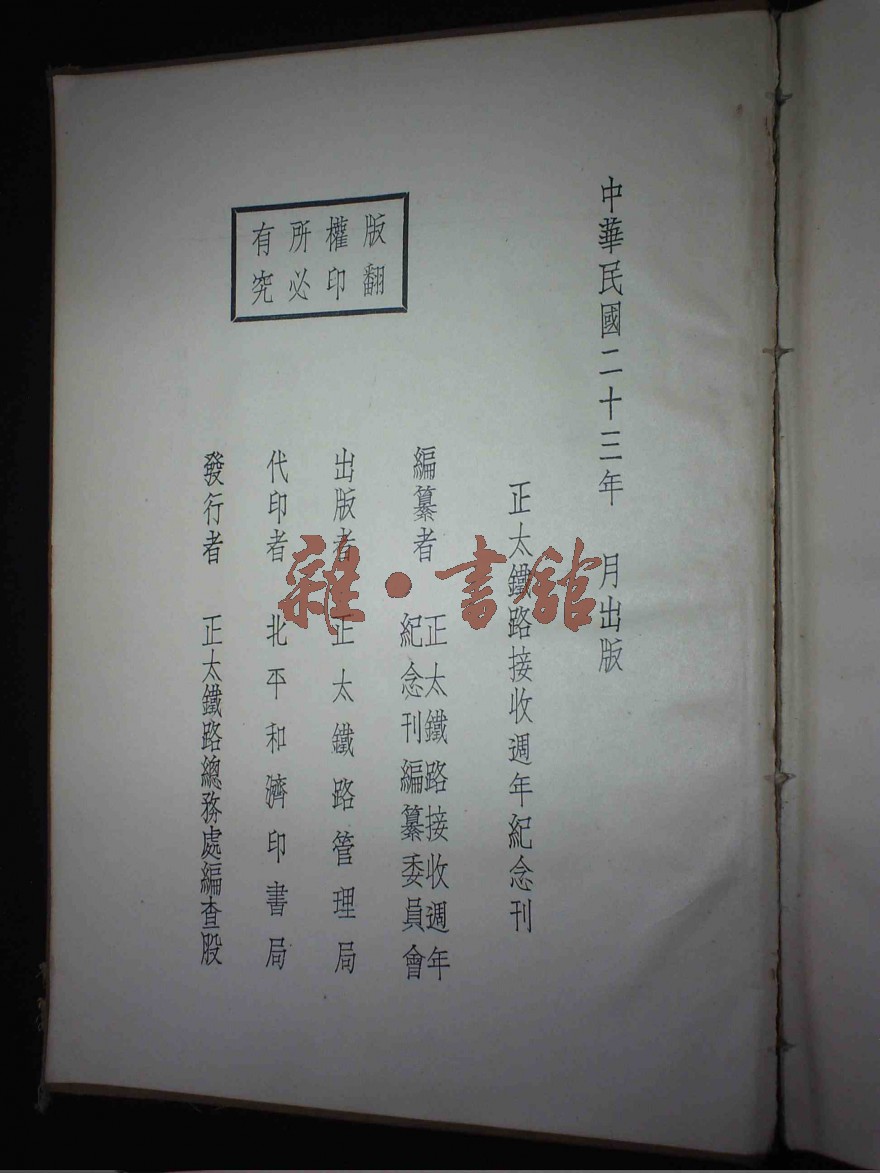 中華民國二十三年　月出版
正太鐵路接收週年紀念刊
編纂者　正太鐵路接收週年
紀念刊編纂委員會
出版者　正太鐵路管理局
代印者　北平和濟印書局
發行者　正太鐵路總務處編查股
版權所有
翻印必究
雜·書館